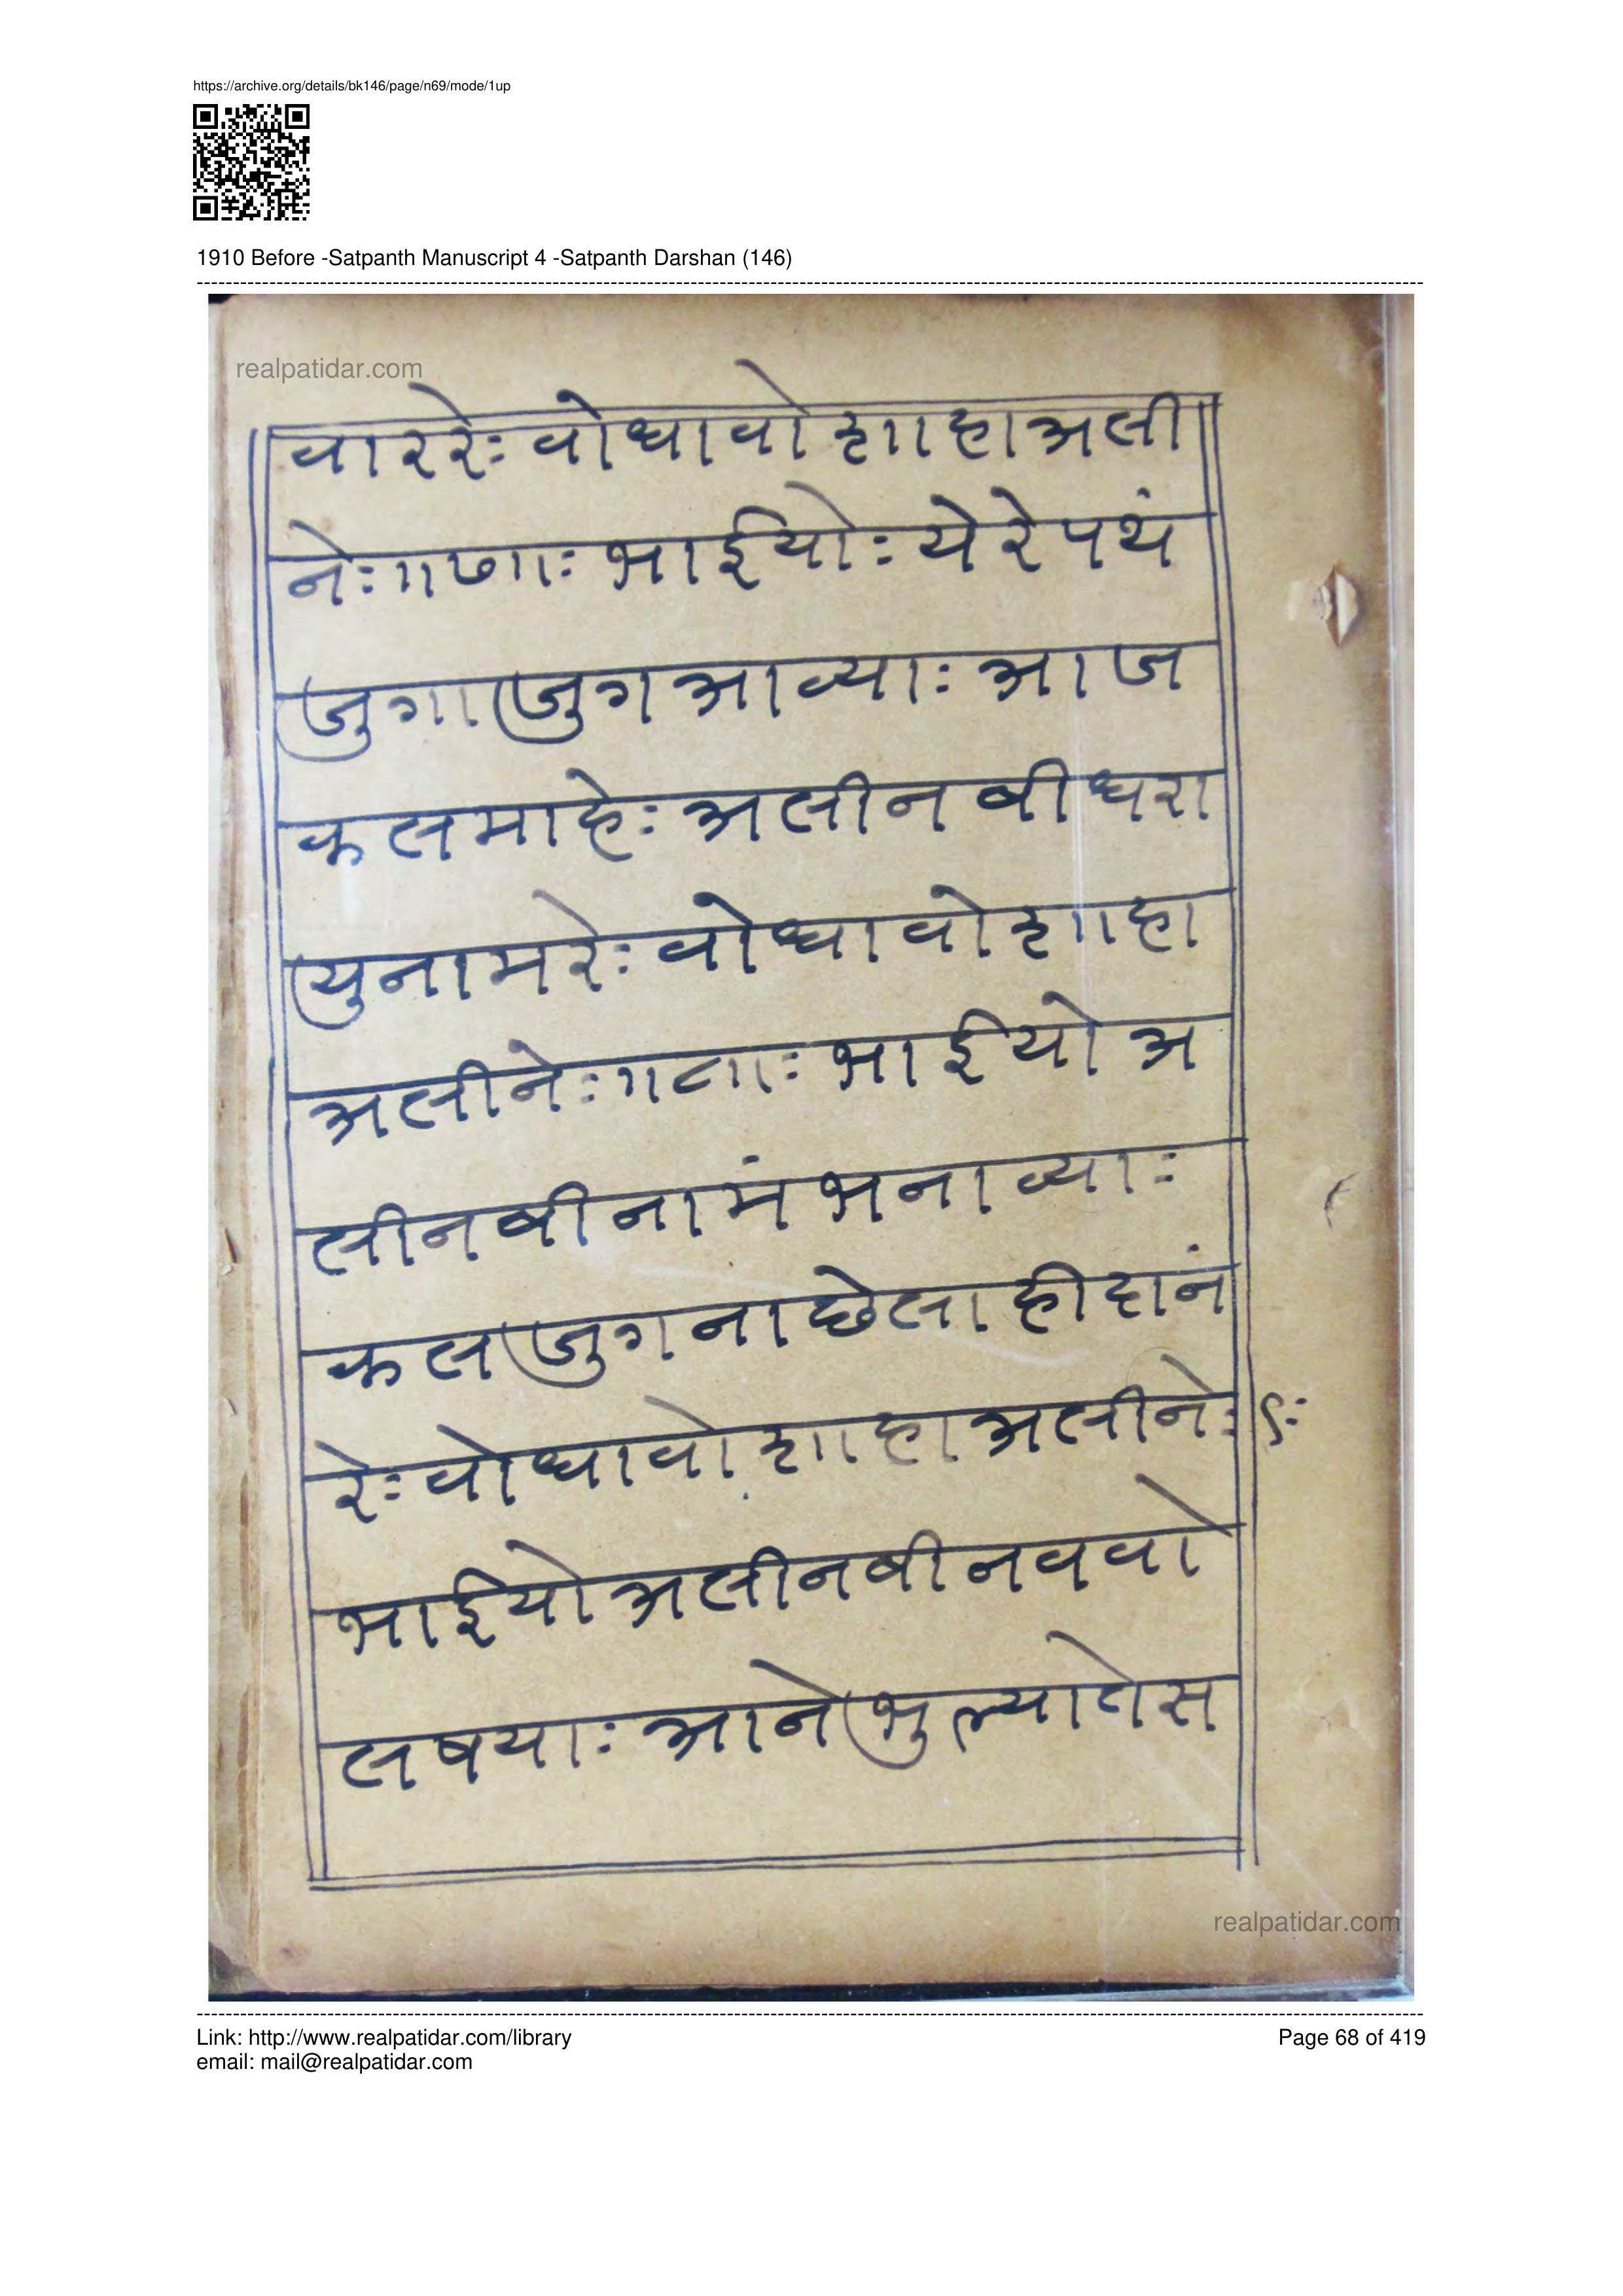 https://archive.org/details/bk146/page/n69/mode/1up
1910 Before -Satpanth Manuscript 4 -Satpanth Darshan (146)
realpatidar.com
वाररेः वोधावो शाहाअली
नेः।।७।।ः भाईयोः येरेपथं
जुगाजुगआव्याः आज
कलमाहेः अलीनबीधरा
युनामरेः वोधावोशाहा
अलीनेः।।८।।ः भाईयोअ
लीनबीनामंभनाव्याः
कलजुगनाछेलाहीदानं
रेः वोधावोशाहाअलीनेः ९ः
भाईयोअलीनबीनववो
लषयाः आनेभुल्यातेस
realpatidar.com
Link: http://www.realpatidar.com/library
Page 68 of 419
email: mail@realpatidar.com